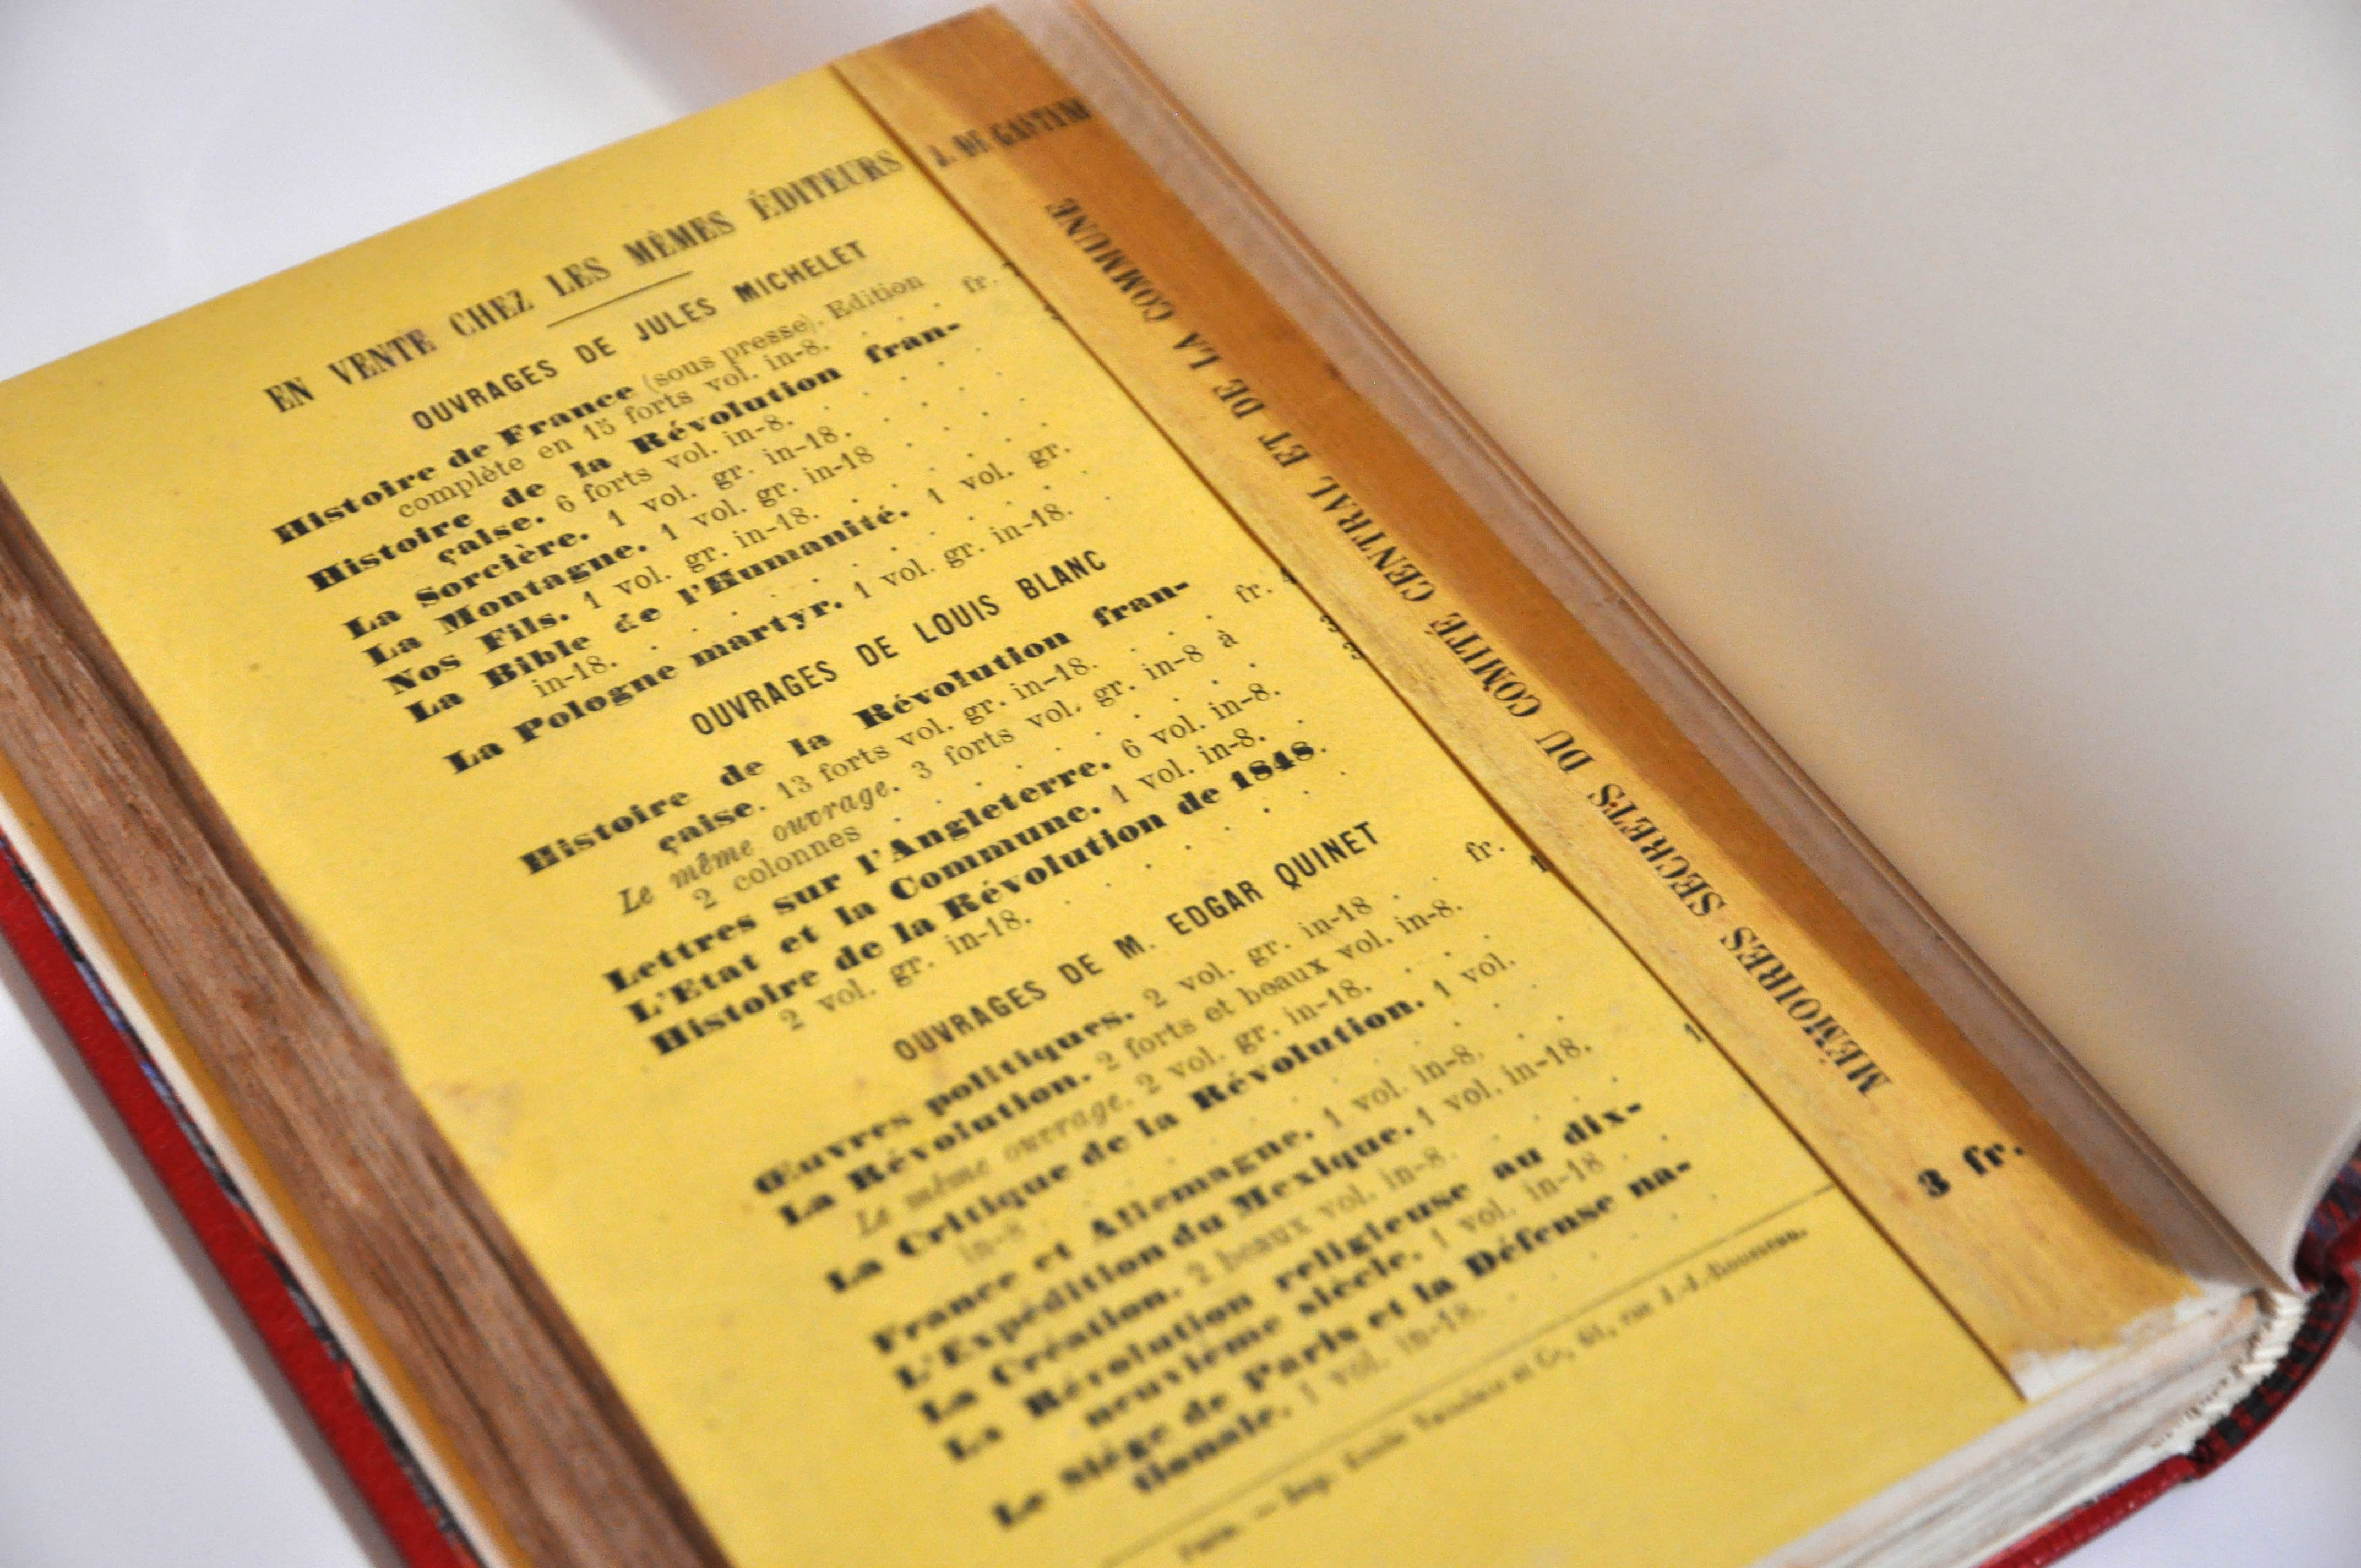 EN VENTE CHEZ LES MÊMES ÉDITEURS
OUVRAGES DE JULES MICHELET
Histoire de France (sous presse). Edition
complète en 15 forts vol. in-8. . . . . fr.
Histoire de la Révolution fran-
çaise. 6 forts vol. in-8. . . . .
La Sorcière. 1 vol. gr. in-18. . . . .
La Montagne. 1 vol. gr. in-18 . . . .
Nos Fils. 1 vol. gr. in-18. . . . . .
La Bible de l'Humanité. 1 vol. gr.
in-18. . . . . . . . .
La Pologne martyr. 1 vol. gr. in-18. .
OUVRAGES DE LOUIS BLANC
Histoire de la Révolution fran-
çaise. 13 forts vol. gr. in-18. . . . fr. 4
Le même ouvrage. 3 forts vol. gr. in-8 à
2 colonnes . . . . . . . .
Lettres sur l'Angleterre. 6 vol. in-8.
L'Etat et la Commune. 1 vol. in-8. .
Histoire de la Révolution de 1848.
2 vol. gr. in-18. . . . . . . .
OUVRAGES DE M. EDGAR QUINET
Œuvres politiques. 2 vol. gr. in-18 . . fr.
La Révolution. 2 forts et beaux vol. in-8. 1
Le même ouvrage. 2 vol. gr. in-18. . . .
La Critique de la Révolution. 1 vol.
in-8 . . . . . . . .
France et Allemagne. 1 vol. in-8. . .
L'Expédition du Mexique. 1 vol. in-18.
La Création. 2 beaux vol. in-8. . . . 1
La Révolution religieuse au dix-
neuvième siècle. 1 vol. in-18 . .
Le Siége de Paris et la Défense na-
tionale. 1 vol. in-18. . . . . .
Paris. — Imp. Emile et Cie, 61, rue J.-J.-Rousseau.
J. DE GASTYNE
MÉMOIRES SECRETS DU COMITÉ CENTRAL ET DE LA COMMUNE
3 fr.